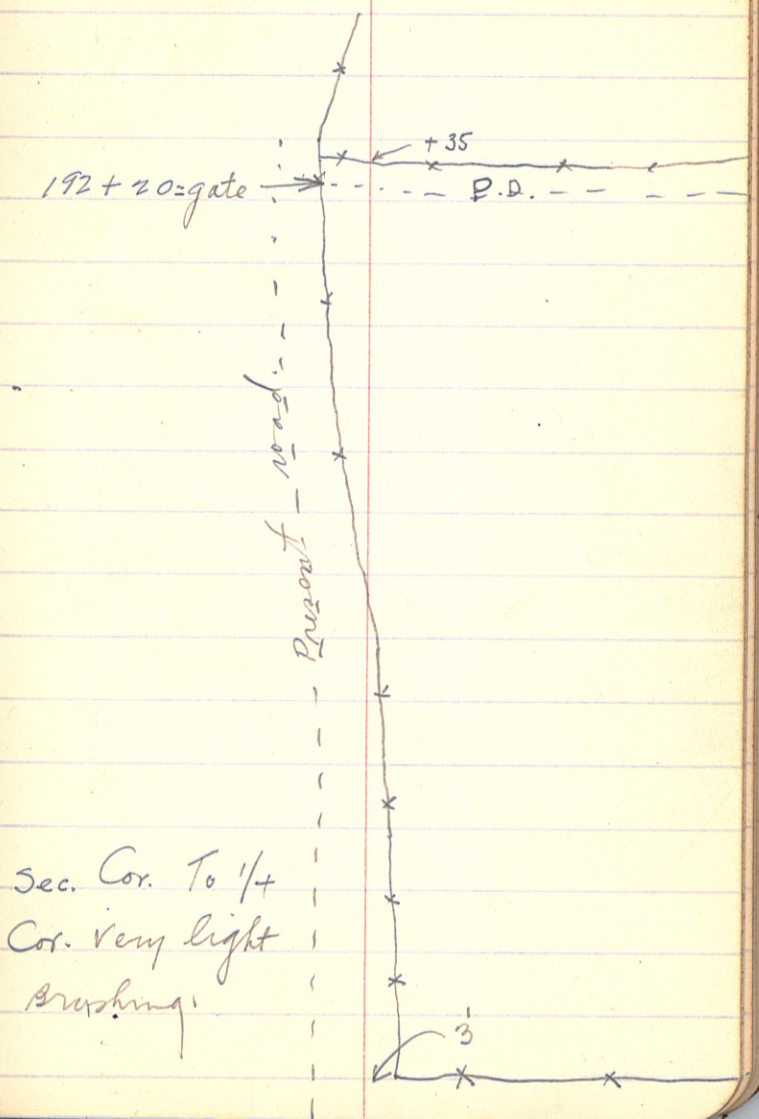 + 35
192 + 20 = gate
P.D.
Present road
Sec. Cor. To 1/4
Cor. Very light
Brushing.
3'